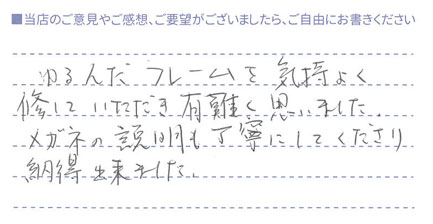 ■当店のご意見やご感想、ご要望がございましたら、ご自由にお書きください
ゆるんだ フレームを 気持よく
修して いただき 有難く 思いました。
メガネの 説明も 丁寧にしてくださり
納得 出来ました。